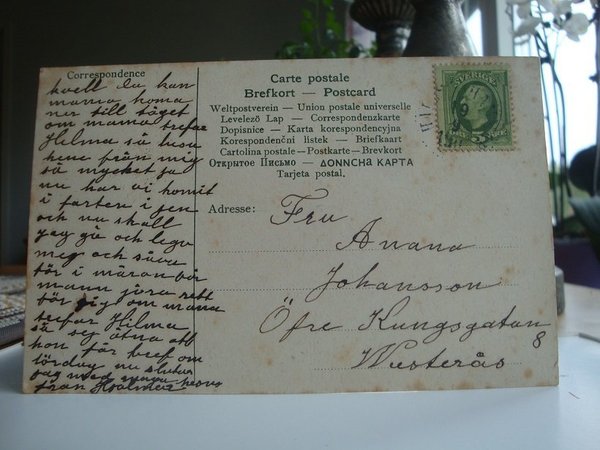 Correspondence
kvell du kan
mama koma
ner till tåget
om mama trefar
Hilma så helsa
hene från mig
så mycket ja
nu har vi komit
i farten i jen
och nu skall
jag gå och lega
meg och såva
för i måron bör
mann jöra rett
för sig om mama
trefar Hilma
så sej åtna att
hon får bref om
lördag nu slutar
jag med
från Hjalmar
Carte postale
Brefkort — Postcard
Weltpostverein — Union postale universelle
Levelező Lap — Correspondenzkarte
Dopisnice — Karta korespondencyjna
Korespondenční listek — Briefkaart
Cartolina postale — Postkarte — Brevkort
Открытое Письмо — ΔΟΠΠCHA KAPTA
Tarjeta postal.
SVERIGE
5
Adresse:
Fru
Anana
Johansson
Öfre Kungsgatan
8
Westerås